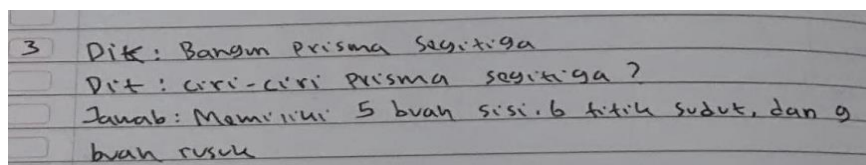 3 Dik: Bangun Prisma Segitiga
Dit: ciri-ciri prisma segitiga?
Jawab: Memiliki 5 buah sisi. 6 titik sudut, dan 9
buah rusuk